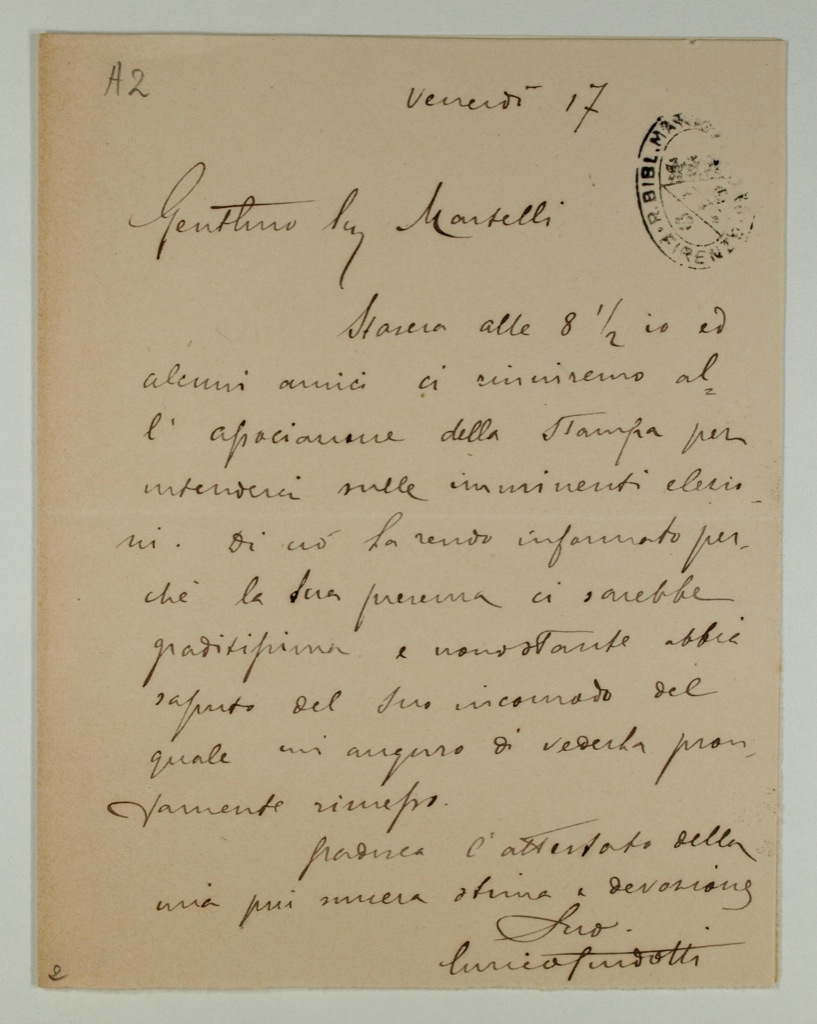 A2
Venerdì 17
R. BIBL. MAR
FIRENZE
Gentilmo Sig Martelli
Stasera alle 8 1/2 io ed
alcuni amici ci riuniremo al=
l' associazione della Stampa per
intenderci sulle imminenti elezio-
ni. Di ciò La rendo informato per-
chè la Sua presenza ci sarebbe
graditissima e nonostante abbia
saputo del Suo incomodo del
quale mi auguro di vederLa pron-
tamente rimesso.
Gradisca l'attestato della
mia più sincera stima e devozione
Suo.
Enrico Guidotti